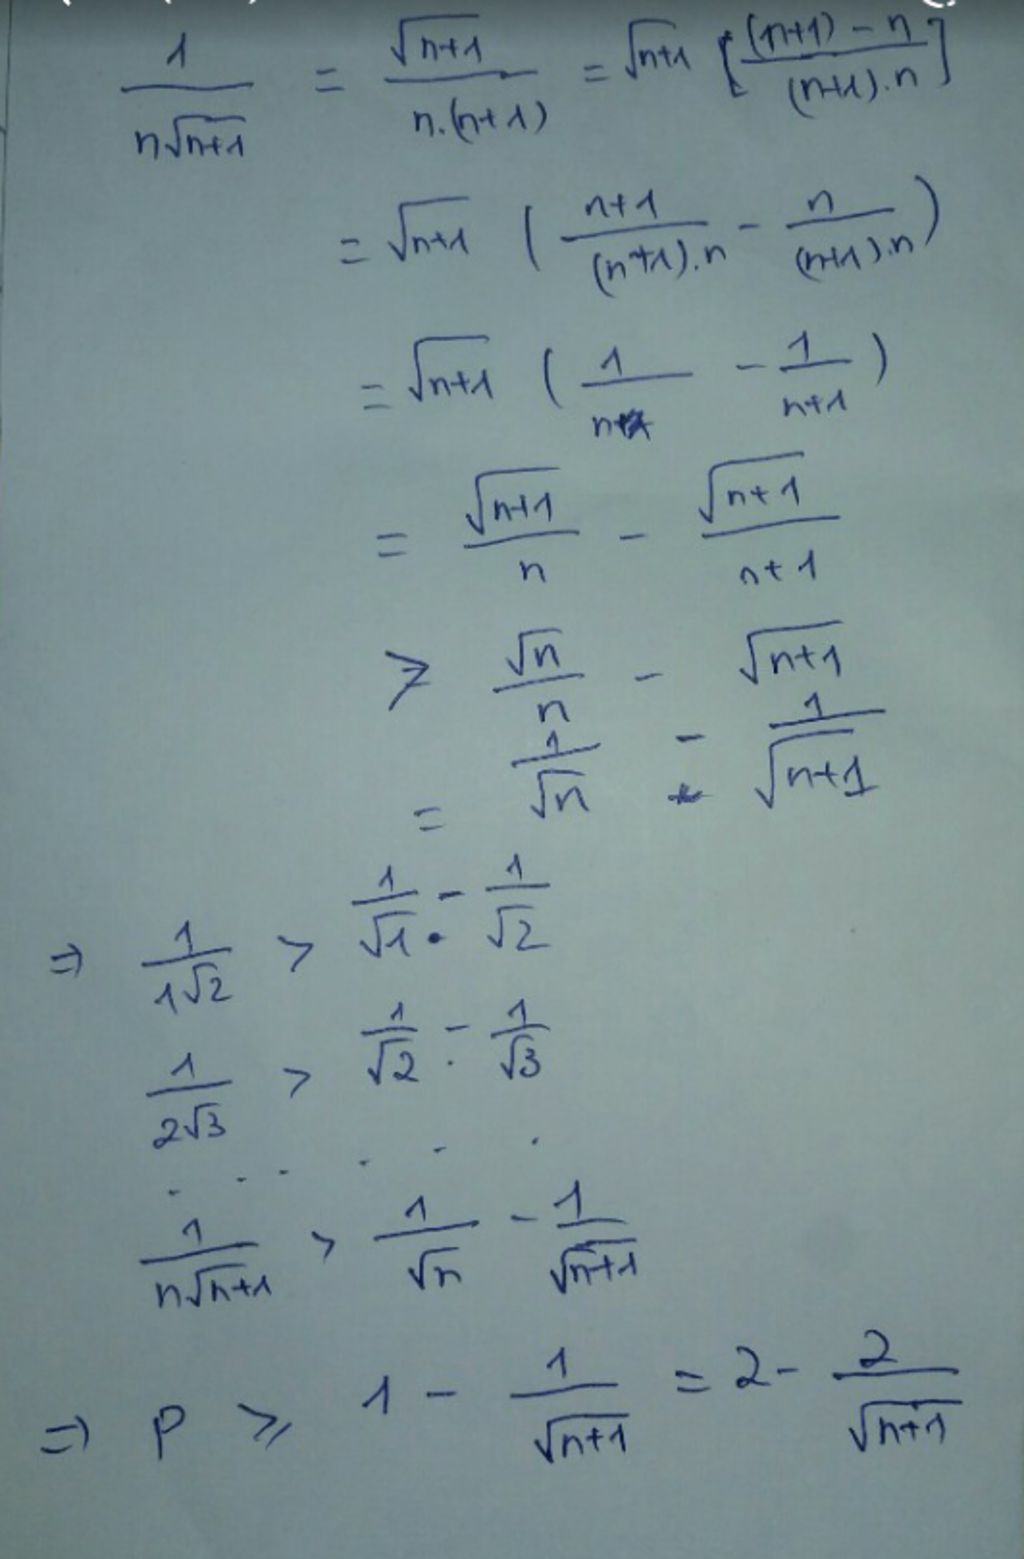 1/(n√(n+1)) = √(n+1)/(n.(n+1)) = √(n+1) [((n+1) - n)/((n+1).n)]
= √(n+1) ( (n+1)/((n+1).n) - n/((n+1).n) )
= √(n+1) ( 1/n - 1/(n+1) )
= √(n+1)/n - √(n+1)/(n+1)
> √n/n - √(n+1)
= 1/√n - 1/√(n+1)
=> 1/(1√2) > 1/√1 - 1/√2
1/(2√3) > 1/√2 - 1/√3
. . . . . .
1/(n√(n+1)) > 1/√n - 1/√(n+1)
=> P ≥ 1 - 1/√(n+1) = 2 - 2/√(n+1)